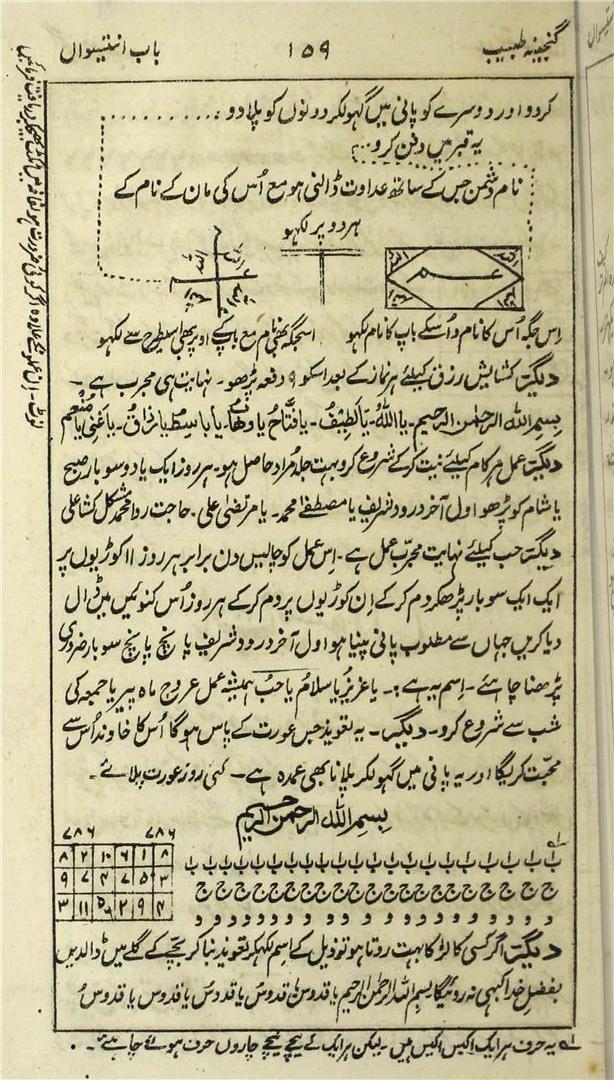 گنجینہ طبیب ۱۵۹ باب انتیسواں
کردو اور دوسرے کو پانی میں گہولکر دونوں کو پلا دو ..........
یہ قبر میں دفن کرو
نام دشمن جس کے ساتھ عداوت ڈالنی ہو مع اُس کی مان کے نام کے
ہر دو پر لکہو
عم
اِس جگہ اُس کا نام و اُسکے باپ کا نام لکہو اسجگہ بھی نام مع باپ کے اوپر بھی اسیطرح سے لکہو
دیگر کشایش رزق کیلئے ہر نماز کے بعد اسکو ۹ دفعہ پڑھو۔ نہایت ہی مجرب ہے۔
بسم اللہ الرحمٰن الرحیم۔ یا اللہُ۔ یا لطیفُ۔ یا فتاحُ یا وھابُ۔ یا باسطُ یا رزاقُ۔ یا غنی یا منعم
دیگر عمل ہر کام کیلئے نیت کر کے شروع کرو بہت جلد مُراد حاصل ہو۔ ہر روز ایک یا دو سو بار صبح
یا شام کو پڑھو اول آخر درود شریف یا مصطفےٰ محمد۔ یا مرتضیٰ علی۔ حاجت روا محمد مشکل کشا علی
دیگر حب کیلئے نہایت مجرب عمل ہے۔ اِس عمل کو چالیس دن برابر ہر روز ۱۱ کوڑیوں پر
ایک ایک سو بار پڑھکر دم کر کے اِن کوڑیوں پر دم کر کے ہر روز اُس کنوئیں میں ڈال
دیا کریں جہاں سے مطلوب پانی پیتا ہو اول آخر درود شریف پانچ پانچ سو بار ضروری
پڑھنا چاہئے۔ اِسم یہ ہے:۔ یا عزیزُ یا سلامُ یا حبُ ہمیشہ عمل عروج ماہ پیر یا جمعہ کی
شب سے شروع کرو۔ دیگر۔ یہ تعویذ جس عورت کے پاس ہوگا اُس کا خاوند اُس سے
محبت کریگا اور یہ پانی میں گہولکر پلانا بھی عمدہ ہے۔ کئی روز عورت پلائے۔
بسم اللہ الرحمن الرحیم
۷۸۶ ۷۸۶
۸ ۲ ۱۰ ۶ ۱ ۸
۹ ۷ ۴ ۷ ۵ ۳
۳ ۱۱ ۲ ۹ ۴
ب ب ب ب ب ب ب ب ب ب ب ب ب ب ب ب ب
ج ج ج ج ج ج ج ج ج ج ج ج ج ج ج ج ج
و و و و و و و و و و و و و و و و و
دیگر اگر کسی کا لڑکا بہت روتا ہو تو ذیل کے اسم لکہکر تعویذ بنا کر بچے کے گلے میں ڈالدیں
بفضلِ خدا کبہی نہ روئیگا بسم اللہ الرحمٰن الرحیم یا قدوسُ یا قدوسُ یا قدوس یا قدوس یا قدوسُ
یہ حرف ہر ایک اکیس اکیس ہیں۔ لیکن ہر ایک کے نیچے نیچے چاروں حرف ہونے چاہئے۔